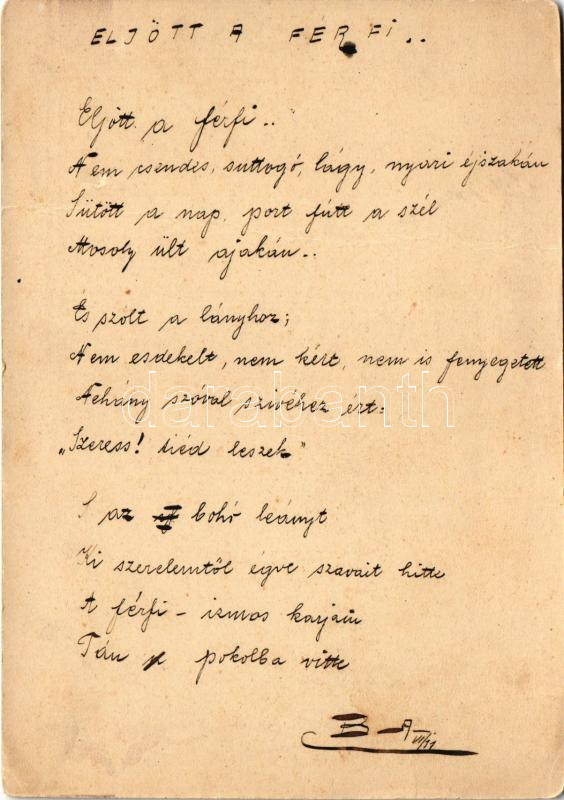 ELJÖTT A FÉRFI..
Eljött a férfi..
Nem csendes, suttogó, lágy, nyári éjszakán
Sütött a nap, port fútt a szél
Mosoly ült ajakán..
És szólt a lányhoz;
Nem esdekelt, nem kért, nem is fenyegetett
Néhány szóval szivéhez ért.
„Szeress! tiéd leszek"
S az bohó leányt
Ki szerelemtől égve szavait hitte
A férfi - izmos karjain
Tán pokolba vitte
B-A VI/11
darabanth